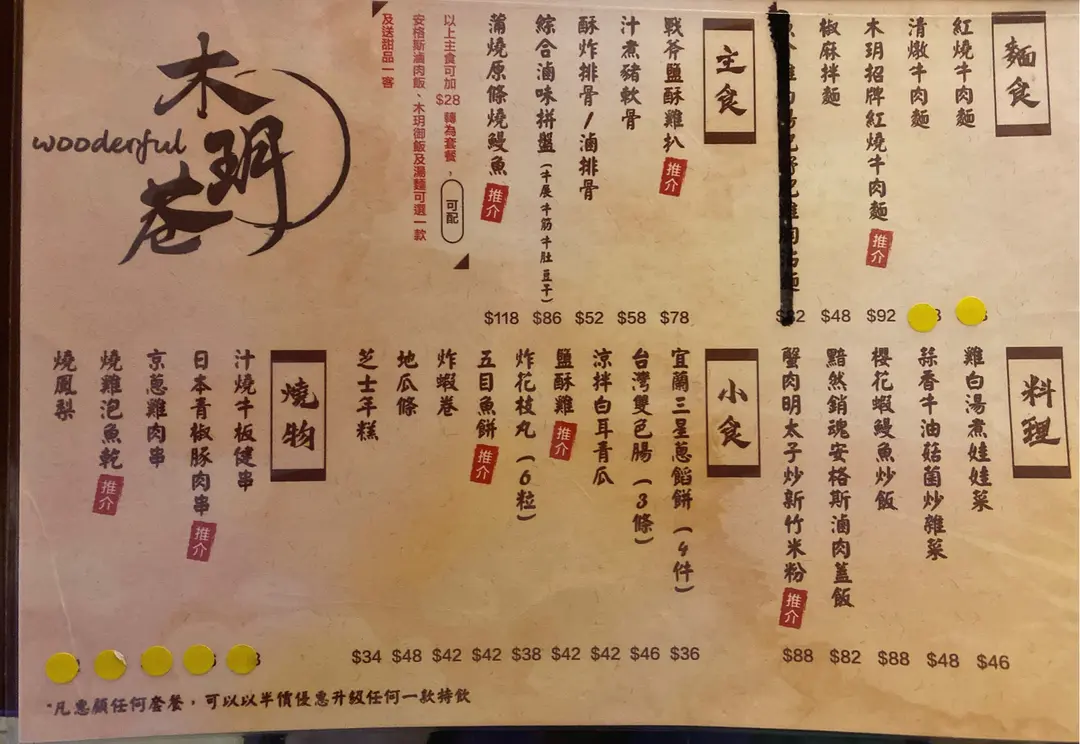 麵食
紅燒牛肉麵
清燉牛肉麵
木玥招牌紅燒牛肉麵 推介 $92
椒麻拌麵 $48
主食
戰斧鹽酥雞扒 推介 $78
汁煮豬軟骨 $58
酥炸排骨/滷排骨 $52
綜合滷味拼盤（牛展牛筋牛肚豆干） $86
蒲燒原條燒鰻魚 推介 $118
以上主食可加$28轉為套餐，可配
安格斯滷肉飯、木玥御飯及湯麵可選一款
及送甜品一客
木玥巷
wooderful
料理
雞白湯煮娃娃菜 $46
蒜香牛油菇菌炒雜菜 $48
櫻花蝦鰻魚炒飯 $88
黯然銷魂安格斯滷肉蓋飯 $82
蟹肉明太子炒新竹米粉 推介 $88
小食
宜蘭三星蔥餡餅（4件） $36
台灣雙色腸（3條） $46
涼拌白耳青瓜 $42
鹽酥雞 推介 $42
炸花枝丸（6粒） $38
五目魚餅 推介 $42
炸蝦卷 $42
地瓜條 $48
芝士年糕 $34
燒物
汁燒牛板健串
日本青椒豚肉串 推介
京蔥雞肉串
燒雞泡魚乾 推介
燒鳳梨
*凡惠顧任何套餐，可以以半價優惠升級任何一款特飲